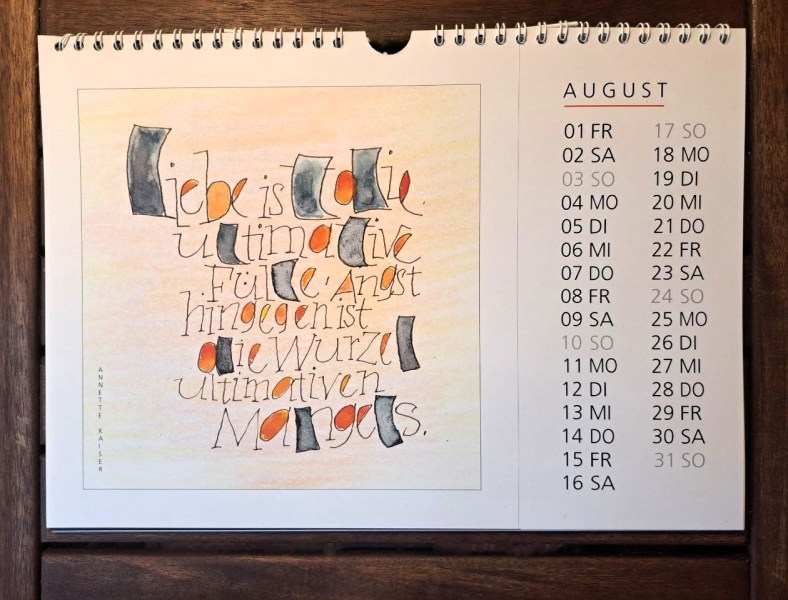 Liebe ist die
ultimative
Fülle, Angst
hingegen ist
die Wurzel
ultimativen
Mangels.
ANNETTE KAISER
AUGUST
01 FR
02 SA
03 SO
04 MO
05 DI
06 MI
07 DO
08 FR
09 SA
10 SO
11 MO
12 DI
13 MI
14 DO
15 FR
16 SA
17 SO
18 MO
19 DI
20 MI
21 DO
22 FR
23 SA
24 SO
25 MO
26 DI
27 MI
28 DO
29 FR
30 SA
31 SO